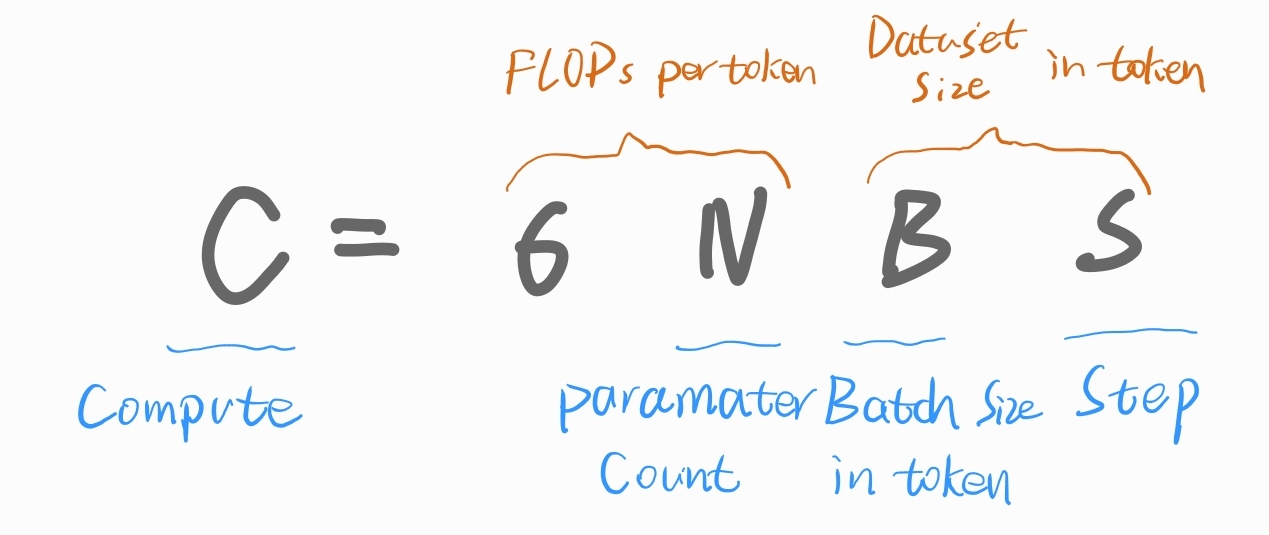 FLOPs per token
Dataset Size in token
C = 6 N B S
Compute
paramater Count
Batch Size in token
Step